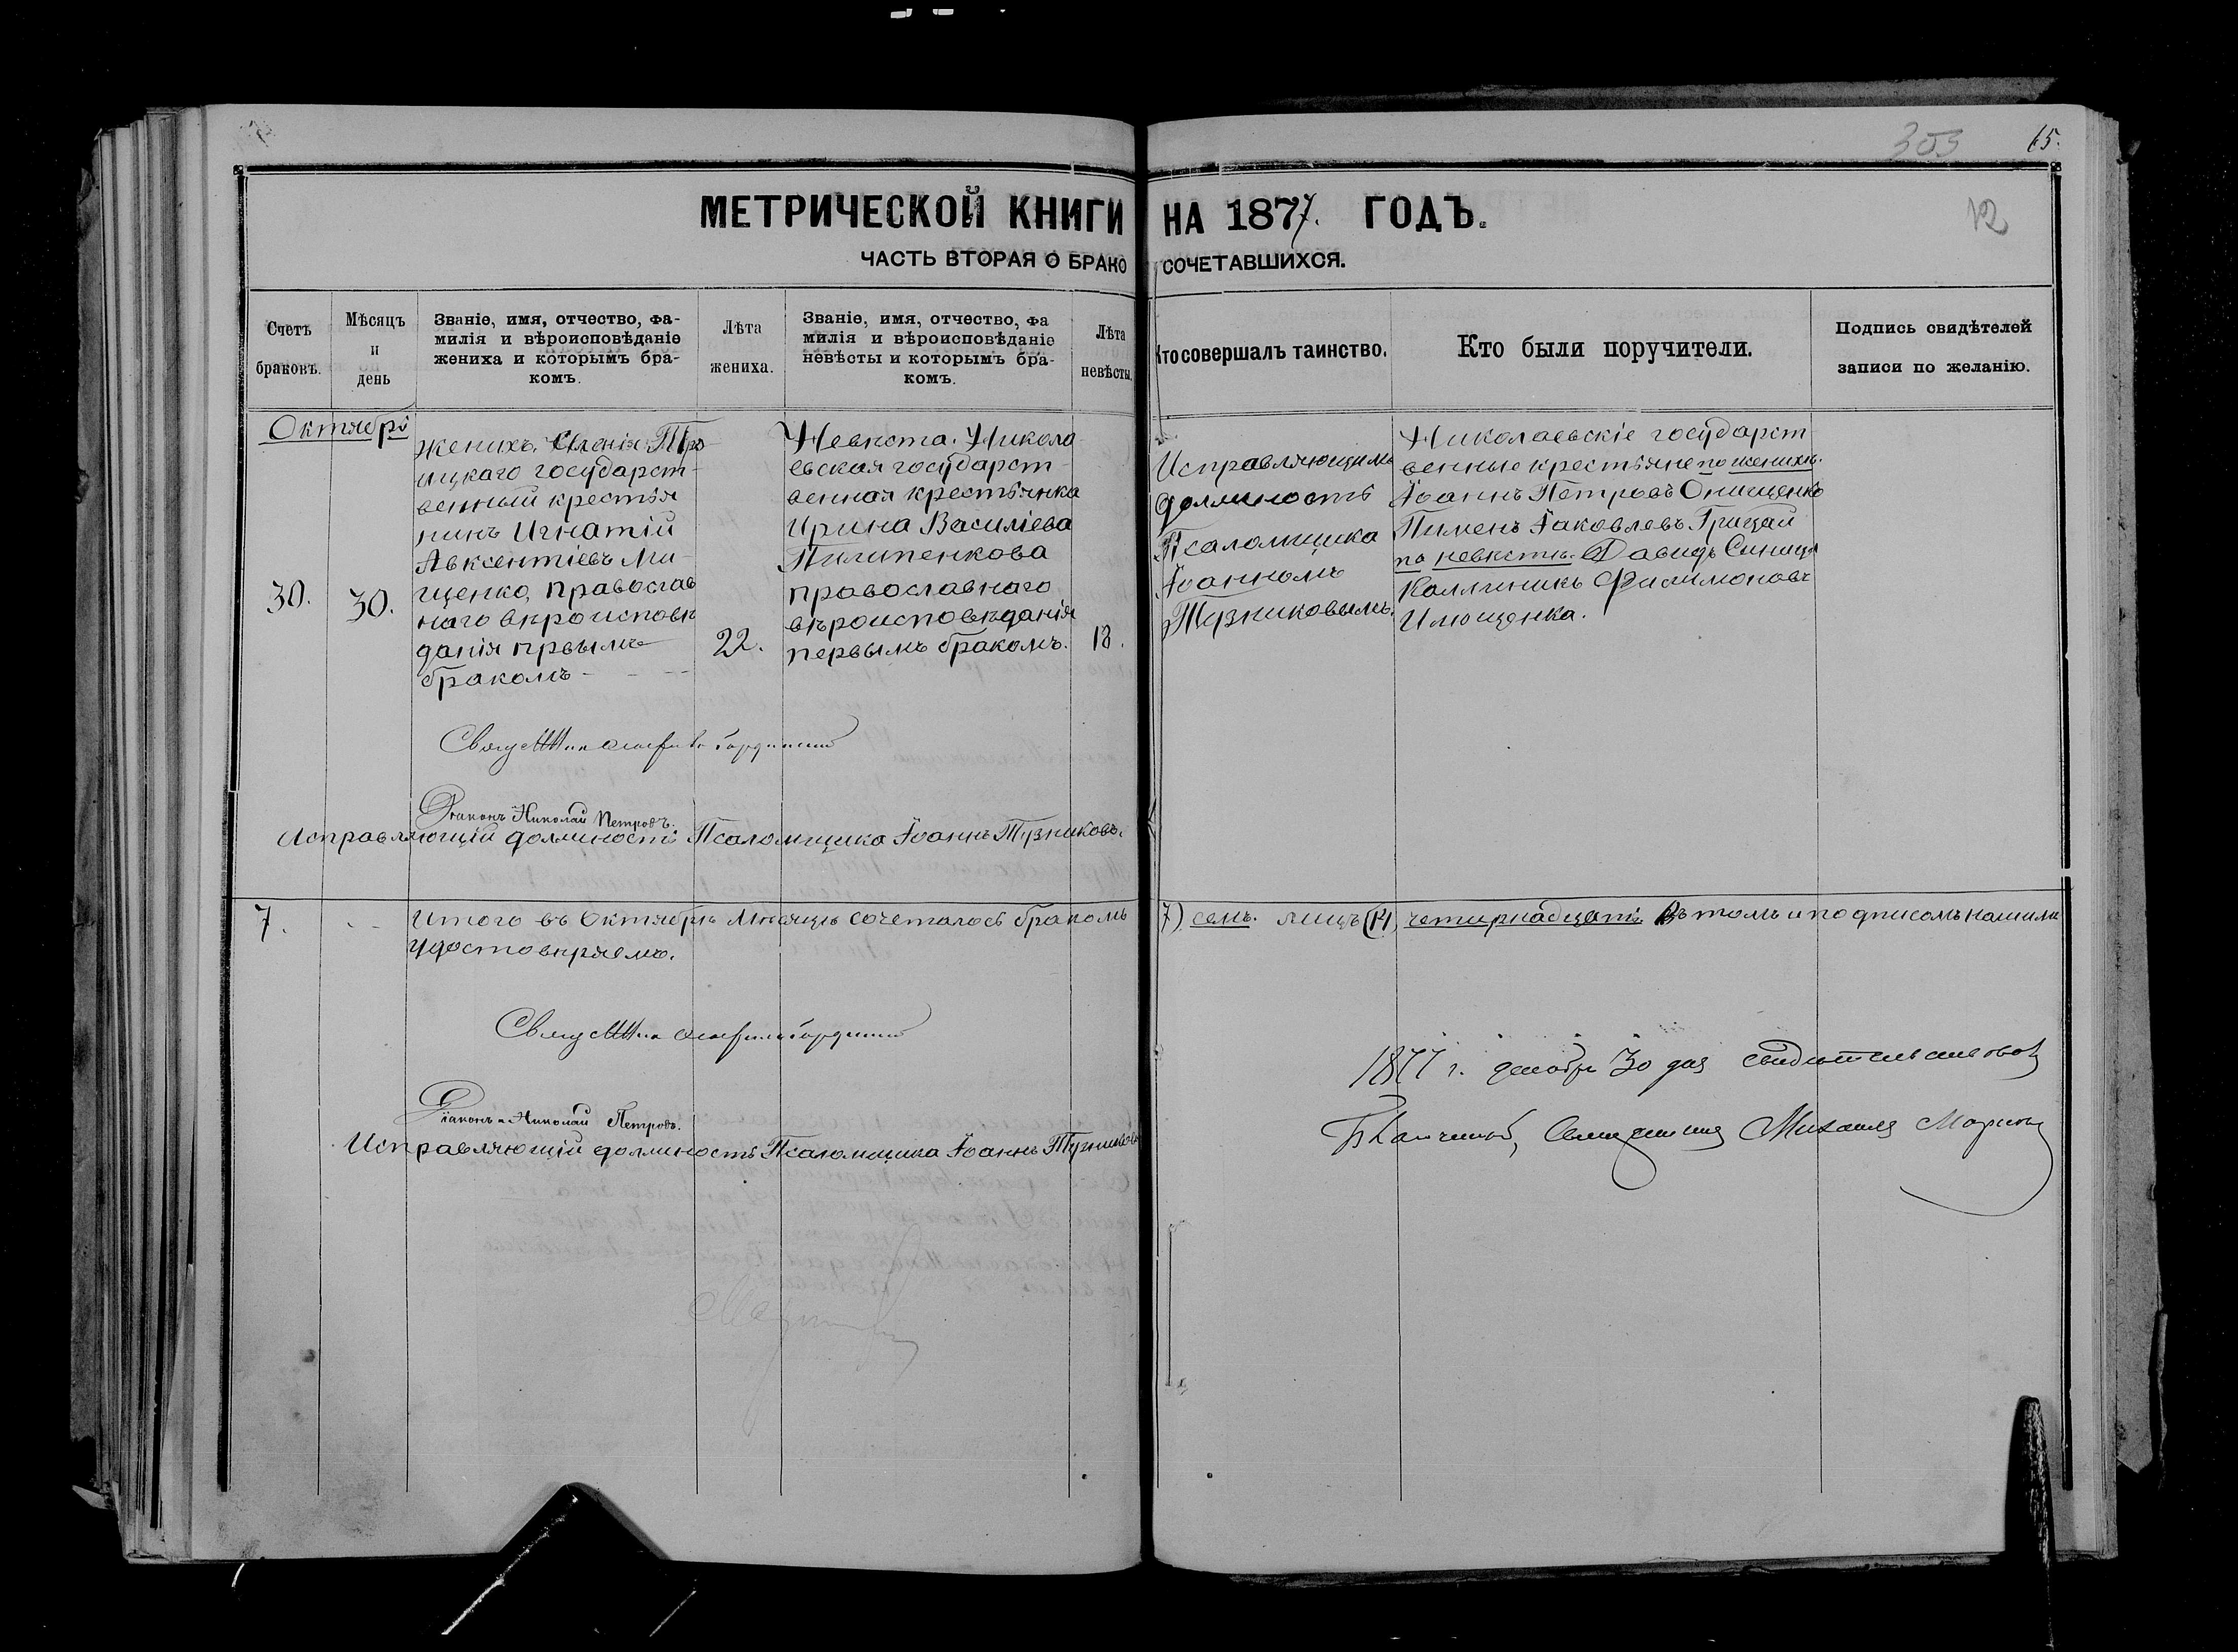 303 65.
12
МЕТРИЧЕСКОЙ КНИГИ НА 1877. ГОДЪ.
ЧАСТЬ ВТОРАЯ О БРАКОСОЧЕТАВШИХСЯ.
Счетъ браковъ.
Мѣсяцъ и день
Званіе, имя, отчество, фа-
милія и вѣроисповѣданіе
жениха и которымъ бра-
комъ.
Лѣта жениха.
Званіе, имя, отчество, фа
милія и вѣроисповѣданіе
невѣсты и которымъ бра-
комъ.
Лѣта невѣсты.
Кто совершалъ таинство.
Кто были поручители.
Подпись свидѣтелей
записи по желанію.
Октябрь
30.
30.
Женихъ, Селенія Тро
ицкаго государст-
венный крестья
нинъ Игнатій
Авксентіевъ Ми-
щенко, православ
наго вѣроисповѣ
данія првымъ
бракомъ
22.
Невѣста. Никола
евская государст-
венная крестьянка
Ирина Василіева
Пилипенкова
православнаго
вѣроисповѣданія
первымъ бракомъ.
18.
Исправляющимъ
должность
Псаломщика
Іоанномъ
Тузниковымъ.
Николаевскіе государст
венные крестьяне по женихѣ.
Іоаннъ Петровъ Онищенко
Пименъ Іаковлевъ Грицай
по невѣстѣ. Давидъ Синица
Каллиникъ Филимоновъ
Илющенка.
Діаконъ Николай Петровъ.
Исправляющій должность Псаломщика Іоаннъ Тузниковъ.
7. Итого въ Октябрѣ Мѣсяцѣ сочеталось бракомъ 7) семь. лицъ (14) четырнадцать Въ томъ и подписомъ нашимъ
удостовѣряемъ.
Діаконъ Николай Петровъ.
Исправляющій должность Псаломщика Іоаннъ Тузниковъ
1877 г. декабря 30 дня свидѣтельствовалъ
Михаилъ